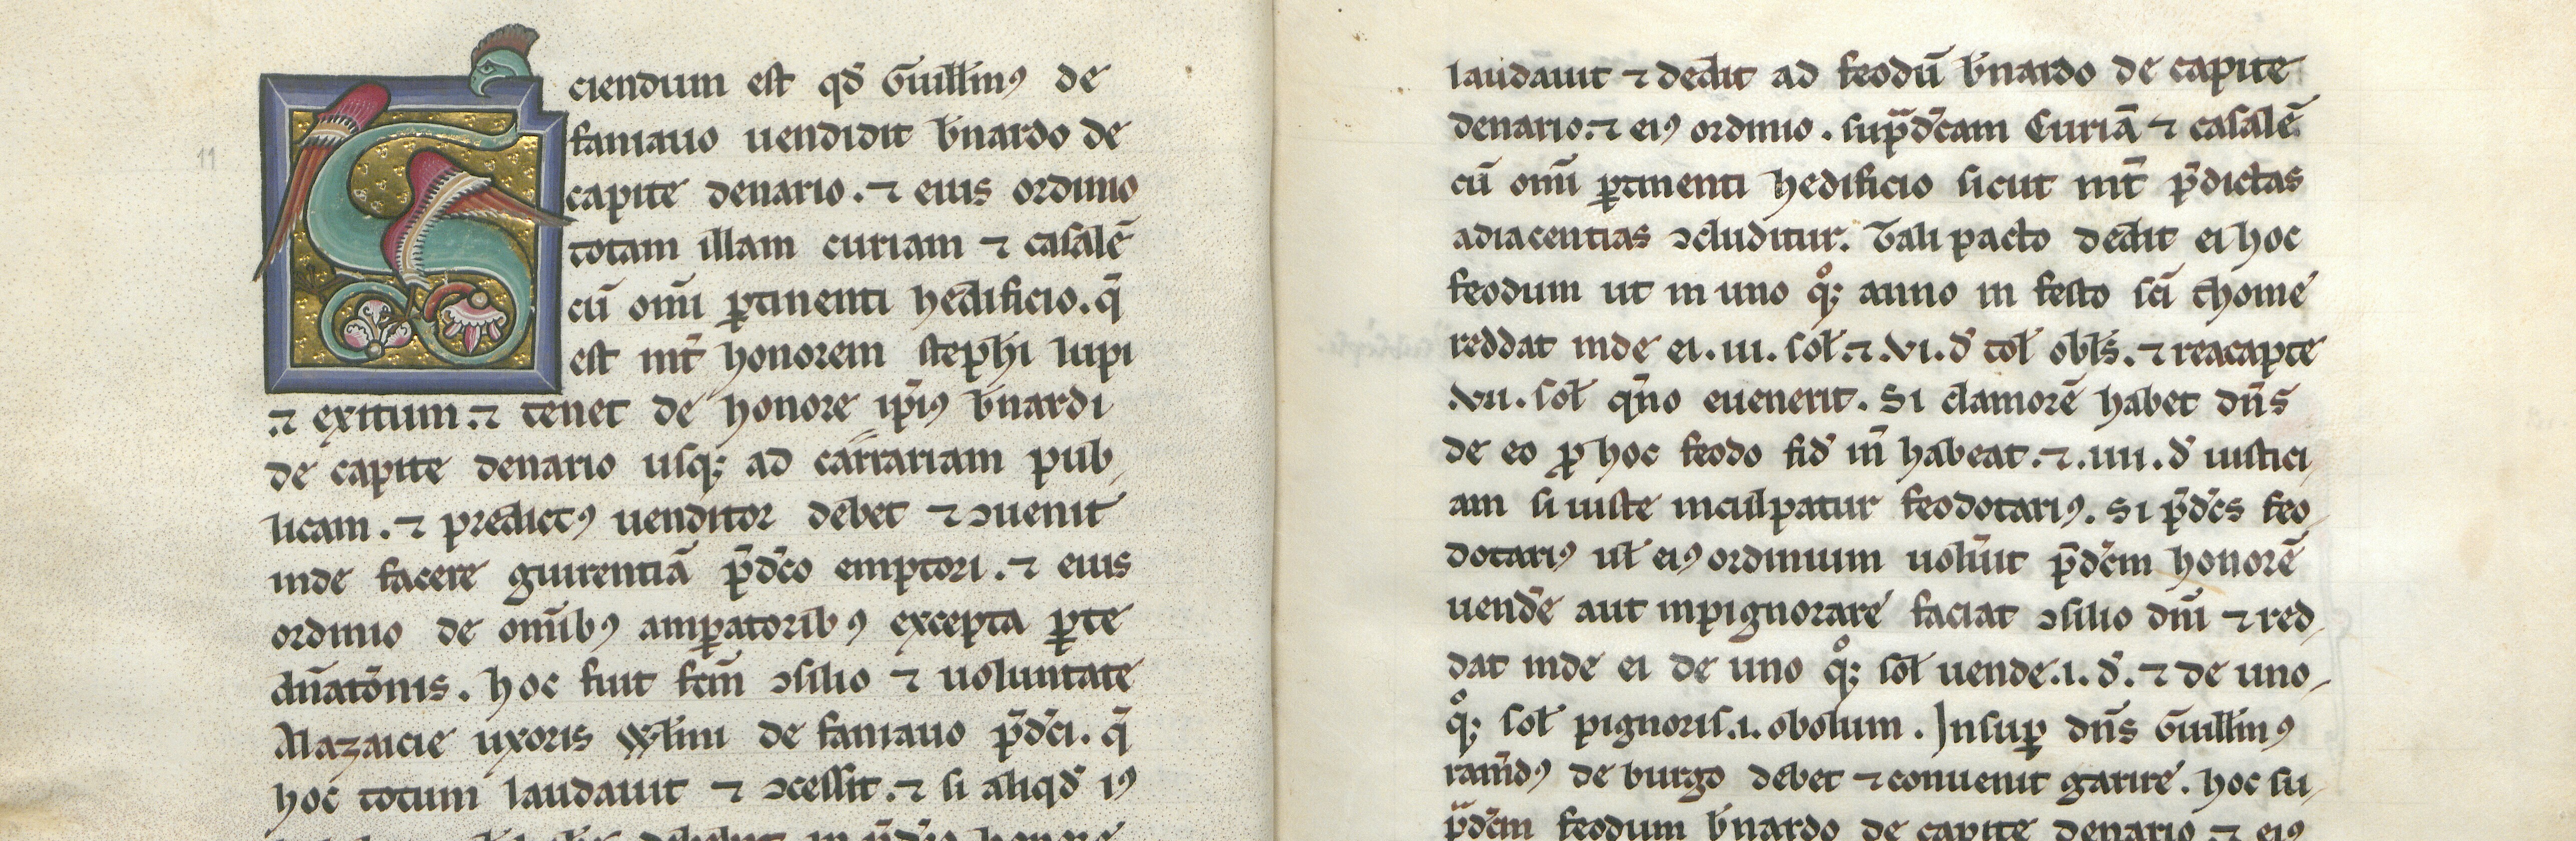 11
Sciendum est qđ Guill̄mꝰ de
faniauo uendidit b̄nardo de
capite denario. ⁊ eius ordinio
totam illam curiam ⁊ casalē
cū om̄i ꝑtinenti hedificio. q̄
est int̄ honorem steph̄i lupi
⁊ exitum. ⁊ tenet de honore ip̄iꝰ b̄nardi
de capite denario usq; ad carrariam pub
licam. ⁊ predictꝰ uenditor debet ⁊ ↄuenit
inde facere guirentiā p̄dc̄o emptori. ⁊ eius
ordinio de om̄ibꝰ amꝑatoribꝰ excepta ꝑte
dn̄atōnis. hoc fuit fcm̄ ↄsilio ⁊ uoluntate
Alazaicie uxoris Wl̄mi de faniauo p̄dc̄i. q̄
hoc totum laudauit ⁊ ↄcessit. ⁊ si aliqđ iꝰ
laudauit ⁊ dedit ad feodū b̄nardo de capite
denario. ⁊ eiꝰ ordinio. sup̄dc̄am Curiā ⁊ casalē
cū om̄i ꝑtinenti hedificio sicut int̄ p̄dictas
adiacentias ↄcluditur. Tali pacto dedit ei hoc
feodum ut in uno qͦ; anno in festo sc̄i thome
reddat inde ei. iii. sol̄. ⁊ .vi. đ tol̄ obl̄s. ⁊ reacapte
.vii. sol̄ qn̄o euenerit. Si clamorē habet dn̄s
de eo ꝓ hoc feodo fiđ in̄ habeat. ⁊ .iiii. đ iustici
am si iuste inculpatur feodotariꝰ. Si p̄dc̄s feo
dotariꝰ ul̄ eiꝰ ordinium uolūit p̄dc̄m honorē
uendē aut inpignorare faciat ↄsilio dn̄i ⁊ red
dat inde ei de uno qͦ; sol̄ uende .i. đ. ⁊ de uno
qͦ; sol̄ pignoris .i. obolum. Insuꝑ dn̄s Guill̄mꝰ
ram̄dꝰ de burgo debet ⁊ conuenit garire. hoc su
p̄dc̄m feodum b̄nardo de capite denario ⁊ eiꝰ